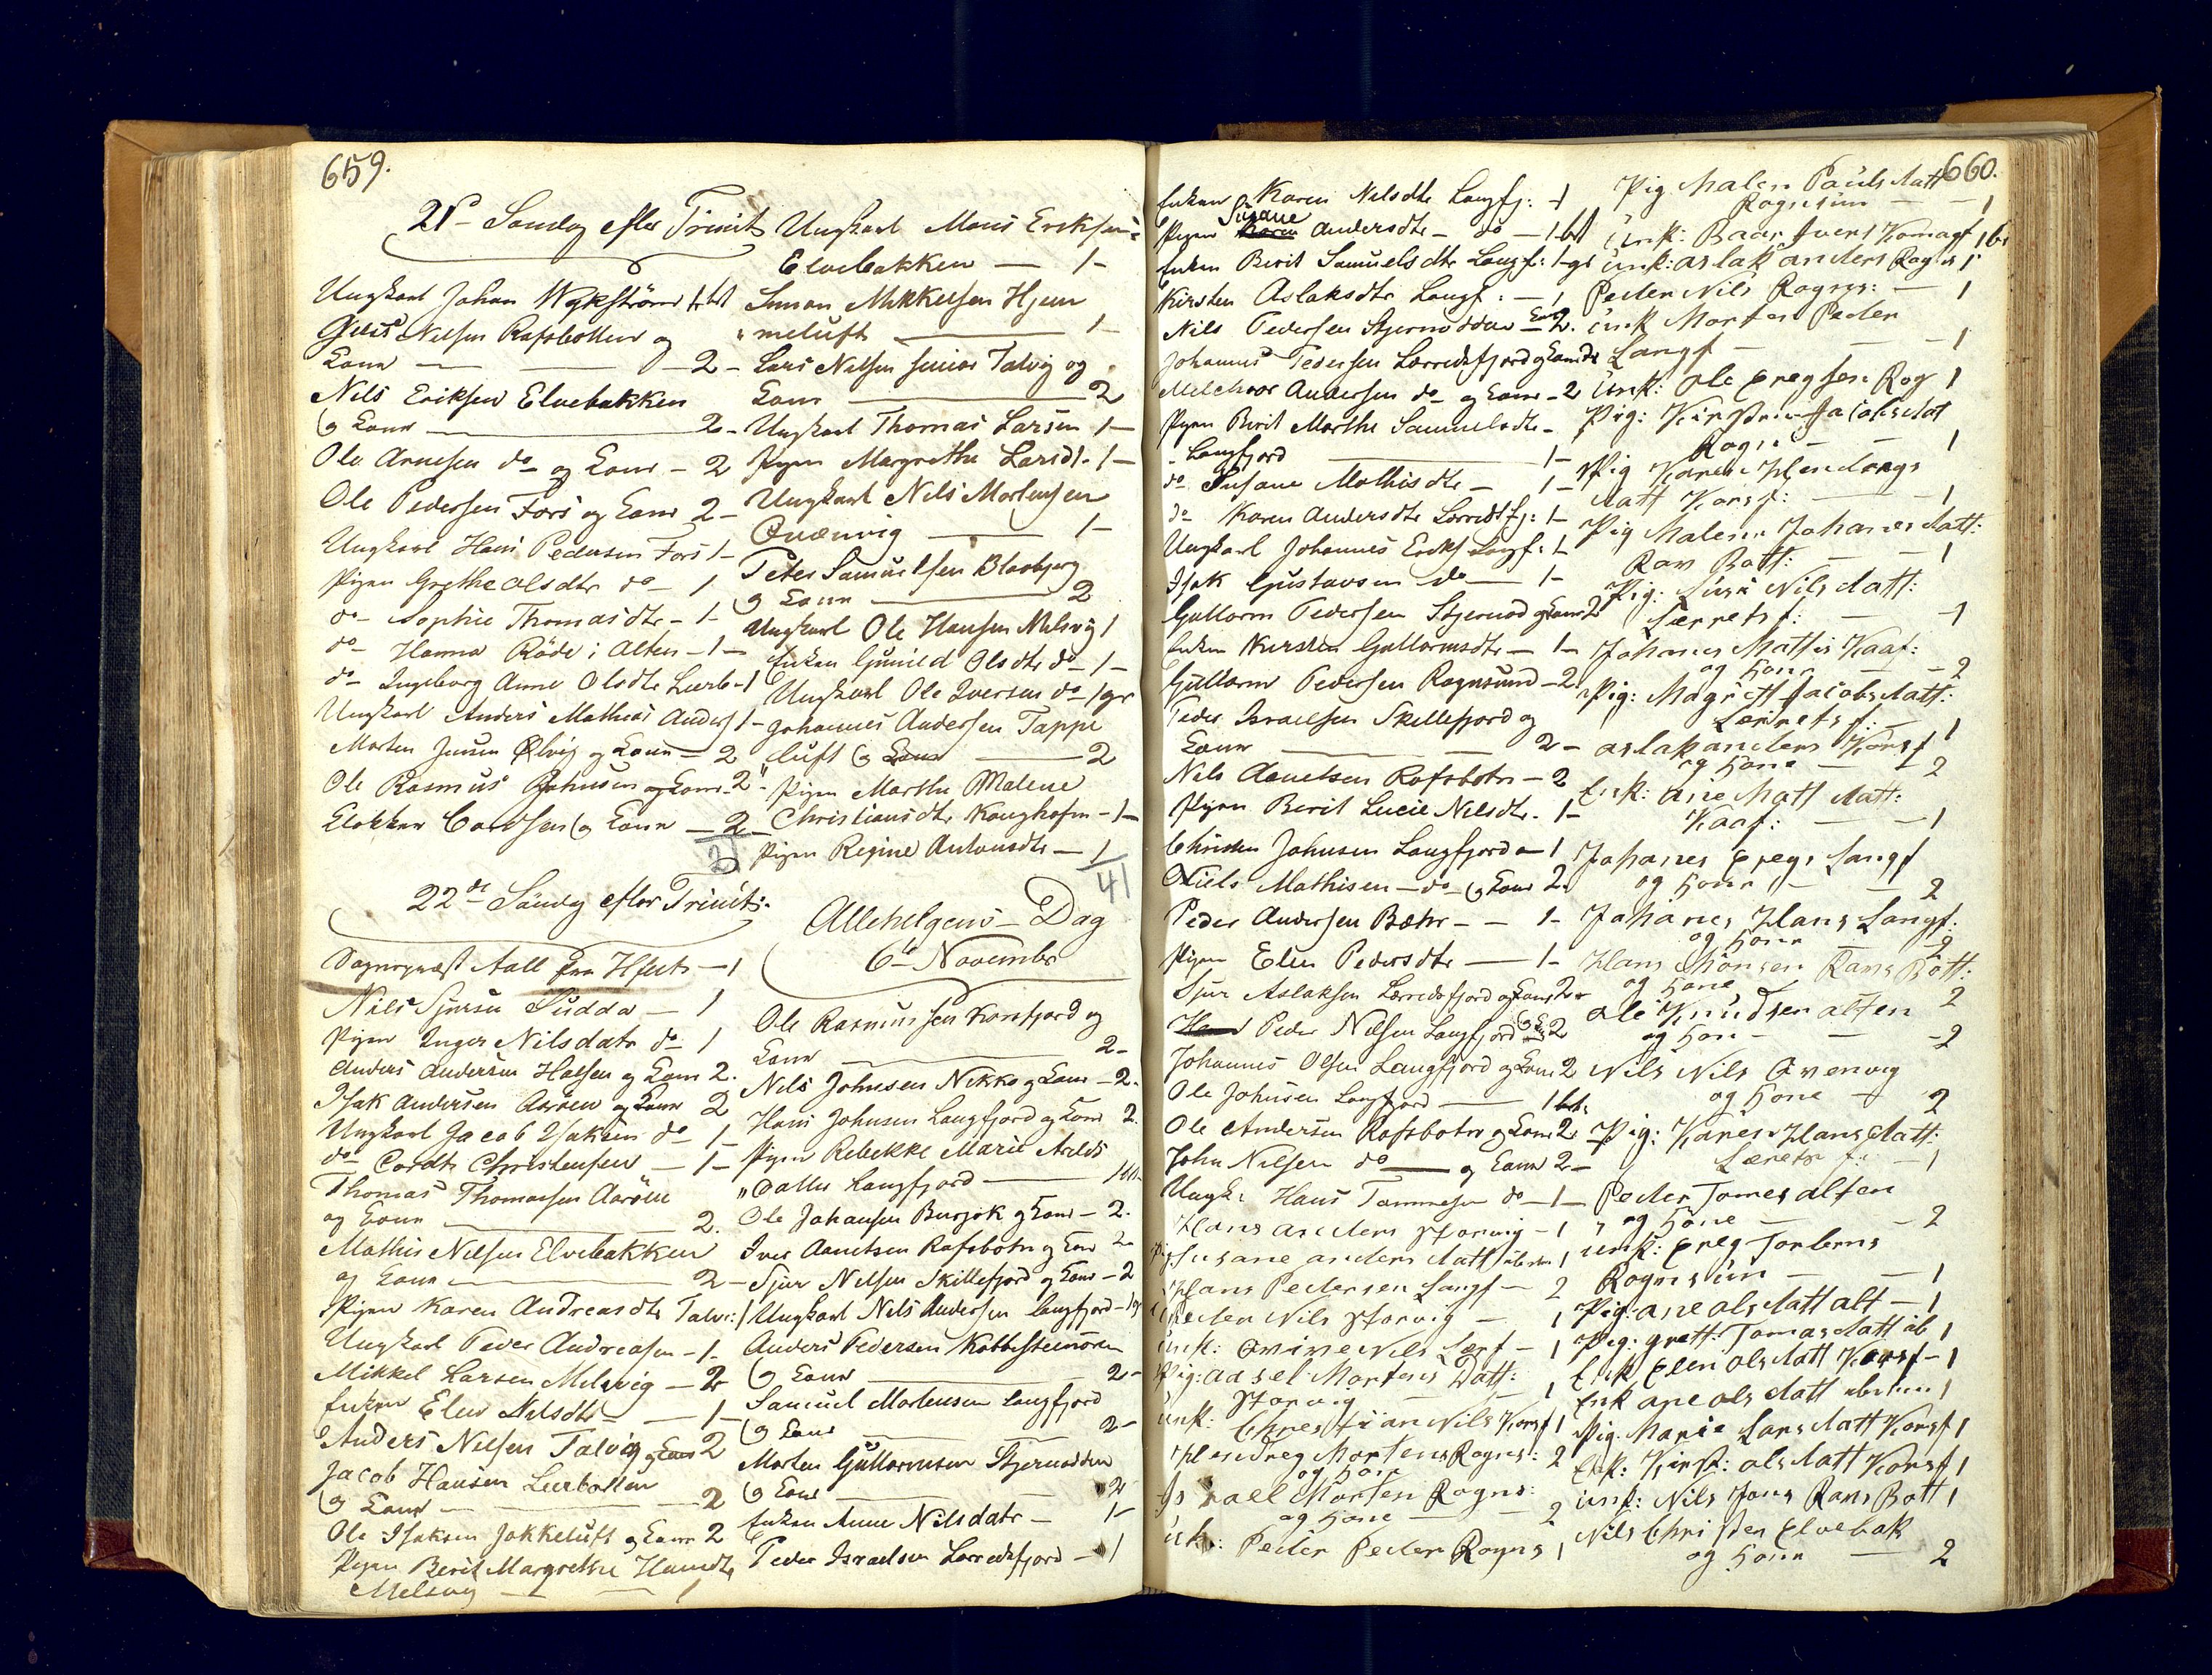 659.
21de Søndag efter Trinit
Ungkarl Johan Wykström 1
Nilsen Rafsbotten og
Kone — 2 -
Nils Eriksen Elvebakken
og Kone — 2 -
Ole Arnesen do og Kone - 2
Ole Pedersen Fors og Kone 2 -
Ungkarl Hans Pedersen Fors 1 -
Pigen Grethe Olsdtr do - 1
do Sophie Thomasdtr - 1 -
do Hanna Röde i Alten - 1 -
do Ingeborg Anne Olsdtr Leerb - 1
Ungkarl Anders Mathias Anders 1 -
Morten Jensen Ølvig og Kone - 2
Ole Rasmus Johnsen og Kone - 2
Klokker Cordsen og Kone - 2 -
22de Söndag efter Trinit:
Sognepræst Aall fra Hfest - 1
Nils Sjursen Sudda - 1
Pigen Inger Nilsdatr do 1
Anders Andersen Halsen og Kone 2.
Isak Andersen Aaröen og Kone 2
Ungkarl Jacob Isaksen do - 1 -
do Cordt Christensen - 1 -
Thomas Thomasen Aaröen
og Kone — 2.
Mathis Nilsen Elvebakken
og Kone — 2 -
Pigen Karen Andreasdtr Talv: 1
Ungkarl Peder Andreasen - 1 -
Mikkel Larsen Melsvig - 2
Enken Elen Nilsdtr - 1 -
Anders Nilsen Talvig og Kone 2
Jacob Hansen Leerbotten
og Kone — 2
Ole Isaksen Jokkeluft og Kone 2
Pigen Berit Margrethe Hansdtr
Melsvig — 1
Ungkarl Mons Eriksen
Elvebakken — 1 -
Simon Mikkelsen Hjem
meluft — 1 -
Lars Nilsen senior Talvig og
Kone — 2
Ungkarl Thomas Larsen 1 -
Pigen Margrethe Larsdt - 1 -
Ungkarl Nils Mortensen
Qvænvig — 1 -
Peter Samuelsen Blaabjerg
og Kone — 2
Ungkarl Ole Hansen Melsvig 1
Enken Gunild Olsdtr do - 1 -
Ungkarl Ole Iversen do - 1 gr
Johannes Andersen Tappe
luft og Kone — 2
Pigen Marthe Malene
Christiansdtr Kongshofm - 1 -
Pigen Regine Antonsdtr — 1
41
Allehelgens - Dag
6te Novembr
Ole Rasmussen Korsfjord og
Kone — 2 -
Nils Johnsen Nikko og Kone - 2.
Hans Johnsen Langfjord og Kone 2.
Pigen Rebekke Marie Arilds
datter Langfjord — 1
Ole Johansen Bursjok og Kone - 2.
Iver Aanetsen Rafsbotn og Kone 2
Sjur Nilsen Skillefjord og Kone - 2
Ungkarl Nils Andersen Langfjord - 1
Anders Pedersen Kobbesteenören
og Kone — 2 -
Samuel Mortensen Langfjord
og Kone — 2 -
Morten Guttormsen Stjernodden
og Kone — 2
Enken Anne Nilsdatr — 1 -
Peder Israelsen Lerredsfjord - 1
660.
Enken Karen Nilsdtr Langfj: - 1
Susane
Pigen Karen Andersdtr - do - 1 bt
Enken Berit Samuelsdtr Langf: 1 - gr
Kirsten Aslaksdtr Langf: - 1
Nils Pedersen Stjernodden Kone 2.
Johannes Pedersen Lerredsfjord og Kone 2
Melchior Andersen do og Kone - 2
Pigen Berit Marthe Samuelsdtr -
- Langfjord — 1 -
do Susane Mathisdtr — 1 -
do Karen Andersdtr Lerredsfj: 1 -
Ungkarl Johannes Eriks Langf: 1 -
Isak Gustavsen do — 1 -
Guttorm Pedersen Stjernod og Kone 2
Enken Kirsten Guttormsdtr — 1 -
Guttorm Pedersen Rognsund - 2
Peder Israelsen Skillefjord og
Kone — 2 -
Nils Aanetsen Rafsbotn - 2
Pigen Berit Lucie Nilsdtr - 1 -
Christen Johnsen Langfjord - 1
Niels Mathisen - do - og Kone 2.
Peder Andersen Bæhr - - 1 -
Pigen Elen Pedersdtr — 1 -
Sjur Aslaksen Lerredsfjord og Kone 2
Peder Nilsen Langfjord og Kone 2
Johannes Olsen Langfjord og Kone 2
Ole Johnsen Langfjord — 1 bt.
Ole Andersen Rafsbotn og Kone 2.
John Nilsen do — og Kone 2 -
Ungk: Hans Tommesen do - 1 -
Hans anders Storvig - 1
Susane anders datt 1
Hans Pedersen Langf - 2
Peder Nils Storvig - 1
unk: Nils Lerf - 1
Pig: aasel Mortens Datt:
Storvig — 1
unk: Christian Nils Korsf 1
Hendreg Mortens Rogns: 2
og Kone
Israel Morten Rogns:
og Kone — 2
unk: Peder Peder Rogns 1
Pig Malen Pauls datt
Rognsun — 1
unk: Baar Ivers Komagf 1 bt
unk: aslak anders Rogns 1
Peder Nils Rogns: — 1
unk Morten Peder
Langf — 1
unk: Ole Eregsen Rog 1
Pig: Kirsten Jacobs dat
Rogs — 1
Pig Karen Hendregs
datt Korsf: — 1
Pig Malen Johanes datt:
Rav Bott: — 1
Pig: Susa Nils datt:
Lerrets f: — 1
Johanes Mattis Kaaf:
og Kone — 2
Pig: Magrett Jacobs datt:
Lerrets f: — 1
aslak anders Korsf
og Kone — 2
Enk: ane Matt datt:
Kaaf: — 1
Johanes Eregs Langf
og Kone — 2
Johanes Hans Langf:
og Kone — 2
Hans Monsen Ravs Bott:
og Kone 2
ole Knudsen alten
og Kone — 2
Nils Nils Qvenvig
og Kone — 2
Pig: Karen Hans datt:
Lerets f: — 1
Peder Tomes alten
og Kone — 2
unk: Ereg Torberns
Rognsun — 1
Pig: ane ols datt alt — 1
Pig: grett: Tomas datt ib 1
Enk Elen ols datt Korsf - 1
Enk ane ols datt 1
Pig. Marie Lars datt Korsf 1
Enk: Kirst: ols datt Korsf 1
unk: Nils Jons Ravs Bott 1
Nils Christen Elvebak
og Kone — 2